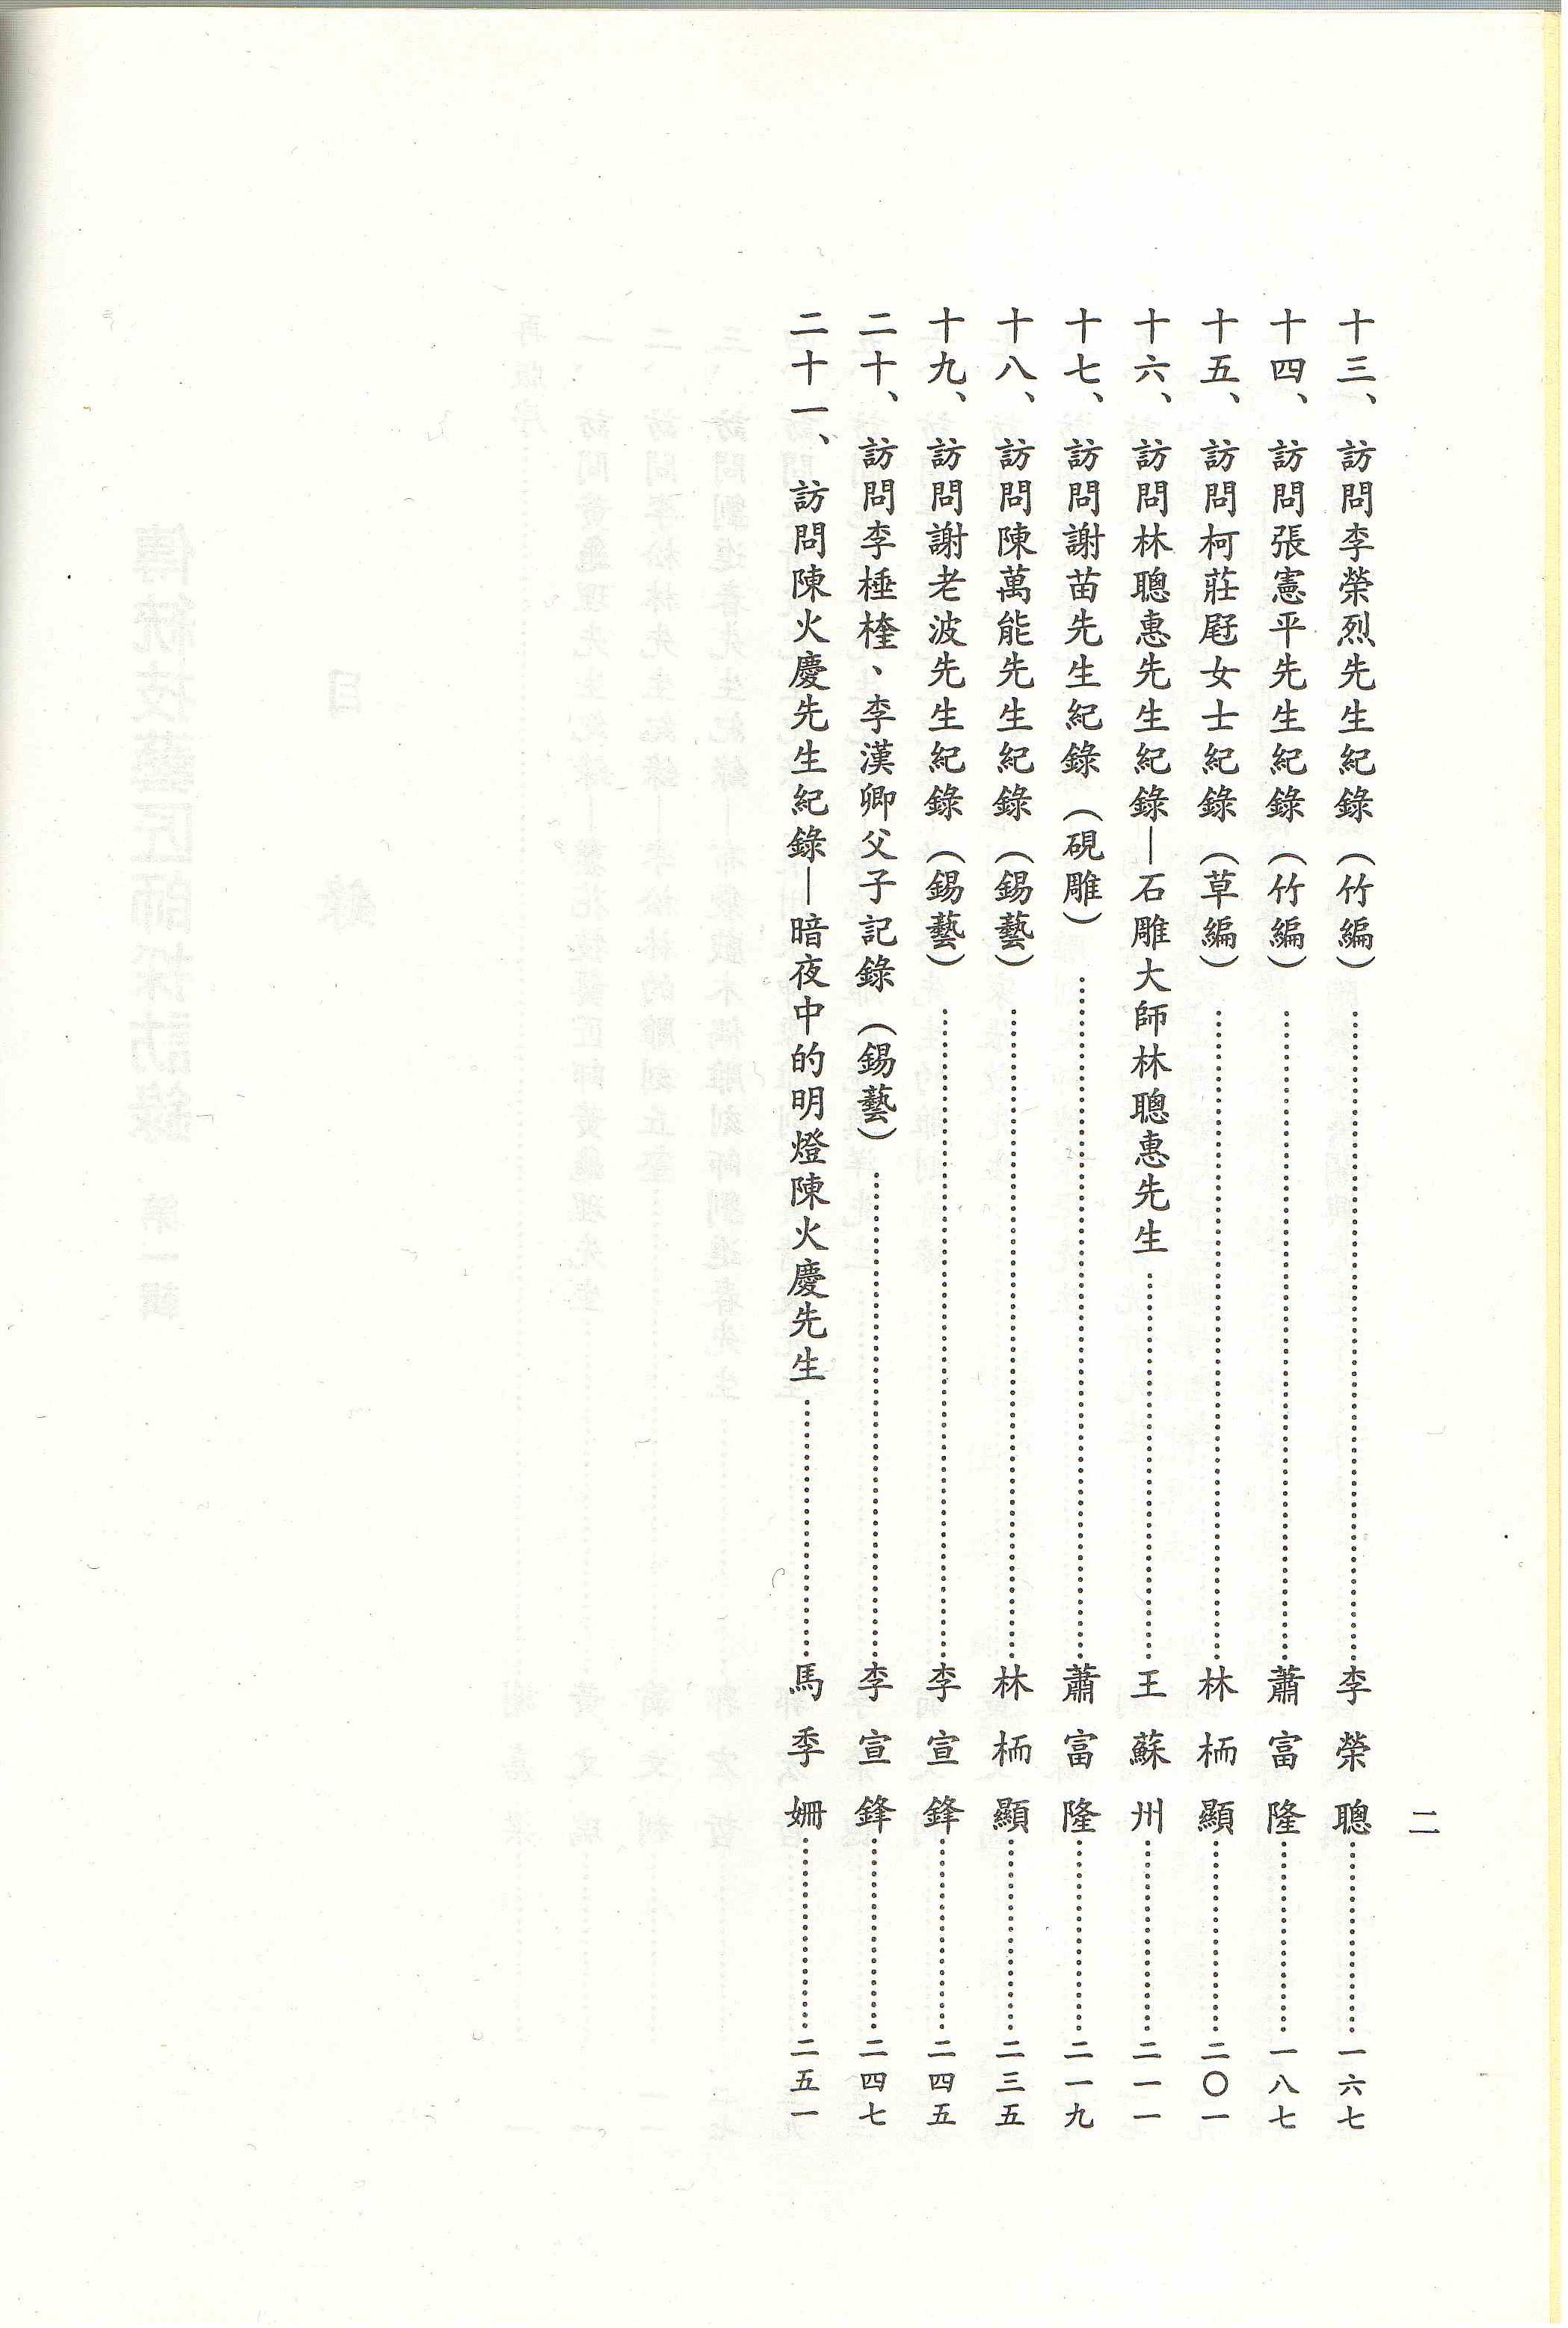 十三、訪問李榮烈先生紀錄（竹編）……李榮聰……一六七
十四、訪問張憲平先生紀錄（竹編）……蕭富隆……一八七
十五、訪問柯莊屘女士紀錄（草編）……林栭顯……二〇一
十六、訪問林聰惠先生紀錄—石雕大師林聰惠先生……王蘇州……二一一
十七、訪問謝苗先生紀錄（硯雕）……蕭富隆……二一九
十八、訪問陳萬能先生紀錄（錫藝）……林栭顯……二三五
十九、訪問謝老波先生紀錄（錫藝）……李宣鋒……二四五
二十、訪問李棰楏、李漢卿父子記錄（錫藝）……李宣鋒……二四七
二十一、訪問陳火慶先生紀錄—暗夜中的明燈陳火慶先生……馬季姍……二五一
二